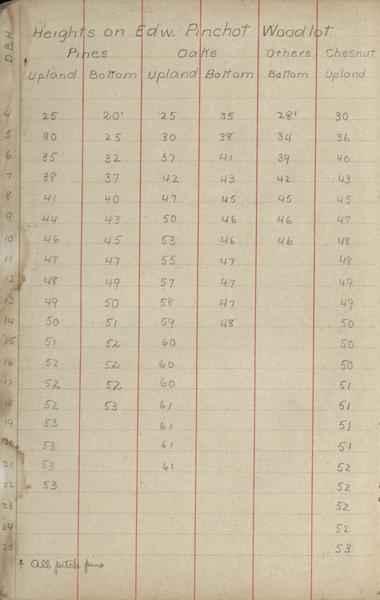 Heights on Edw. Pinchot Woodlot
D.B.H. Pines Oaks Others Chesnut
Upland Bottom Upland Bottom Bottom Upland
4 25 20' 25 35 28' 30
5 30 25 30 38 34 36
6 35 32 37 41 39 40
7 38 37 42 43 42 43
8 41 40 47 45 45 45
9 44 43 50 46 46 47
10 46 45 53 46 46 48
11 47 47 55 47 48
12 48 49 57 47 49
13 49 50 58 47 49
14 50 51 59 48 50
15 51 52 60 50
16 52 52 60 50
17 52 52 60 51
18 52 53 61 51
19 53 61 51
20 53 61 51
21 53 61 52
22 53 52
23 52
24 52
25 53
All pitch pine